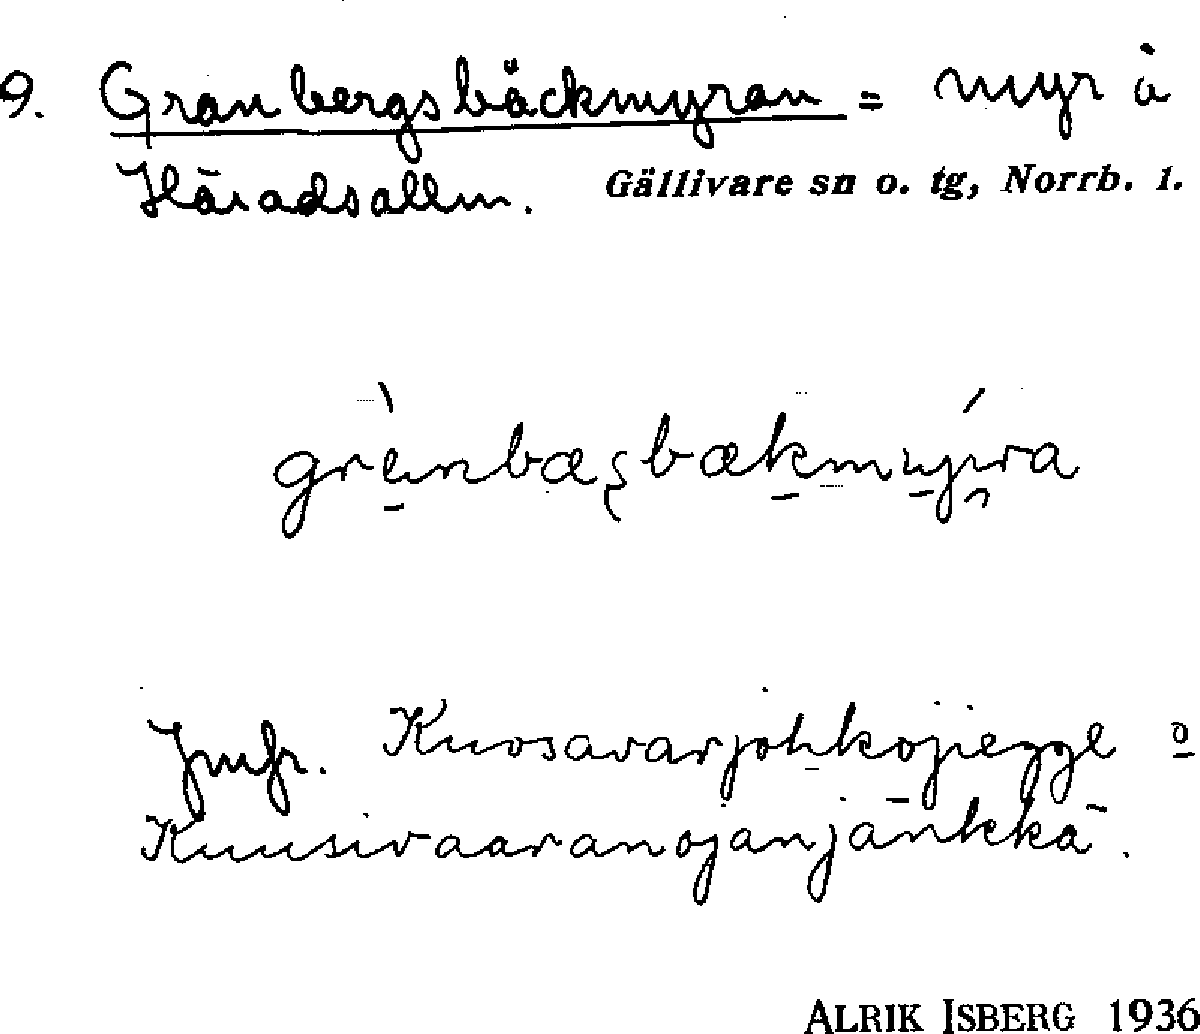 9. Granbergsbäckmyran = myr å
Häradsallm. Gällivare sn o. tg, Norrb. l.
Jmfr. Kuosavarjohkojegge o
Kuusivaaranojanjänkkä.
ALRIK ISBERG 1936